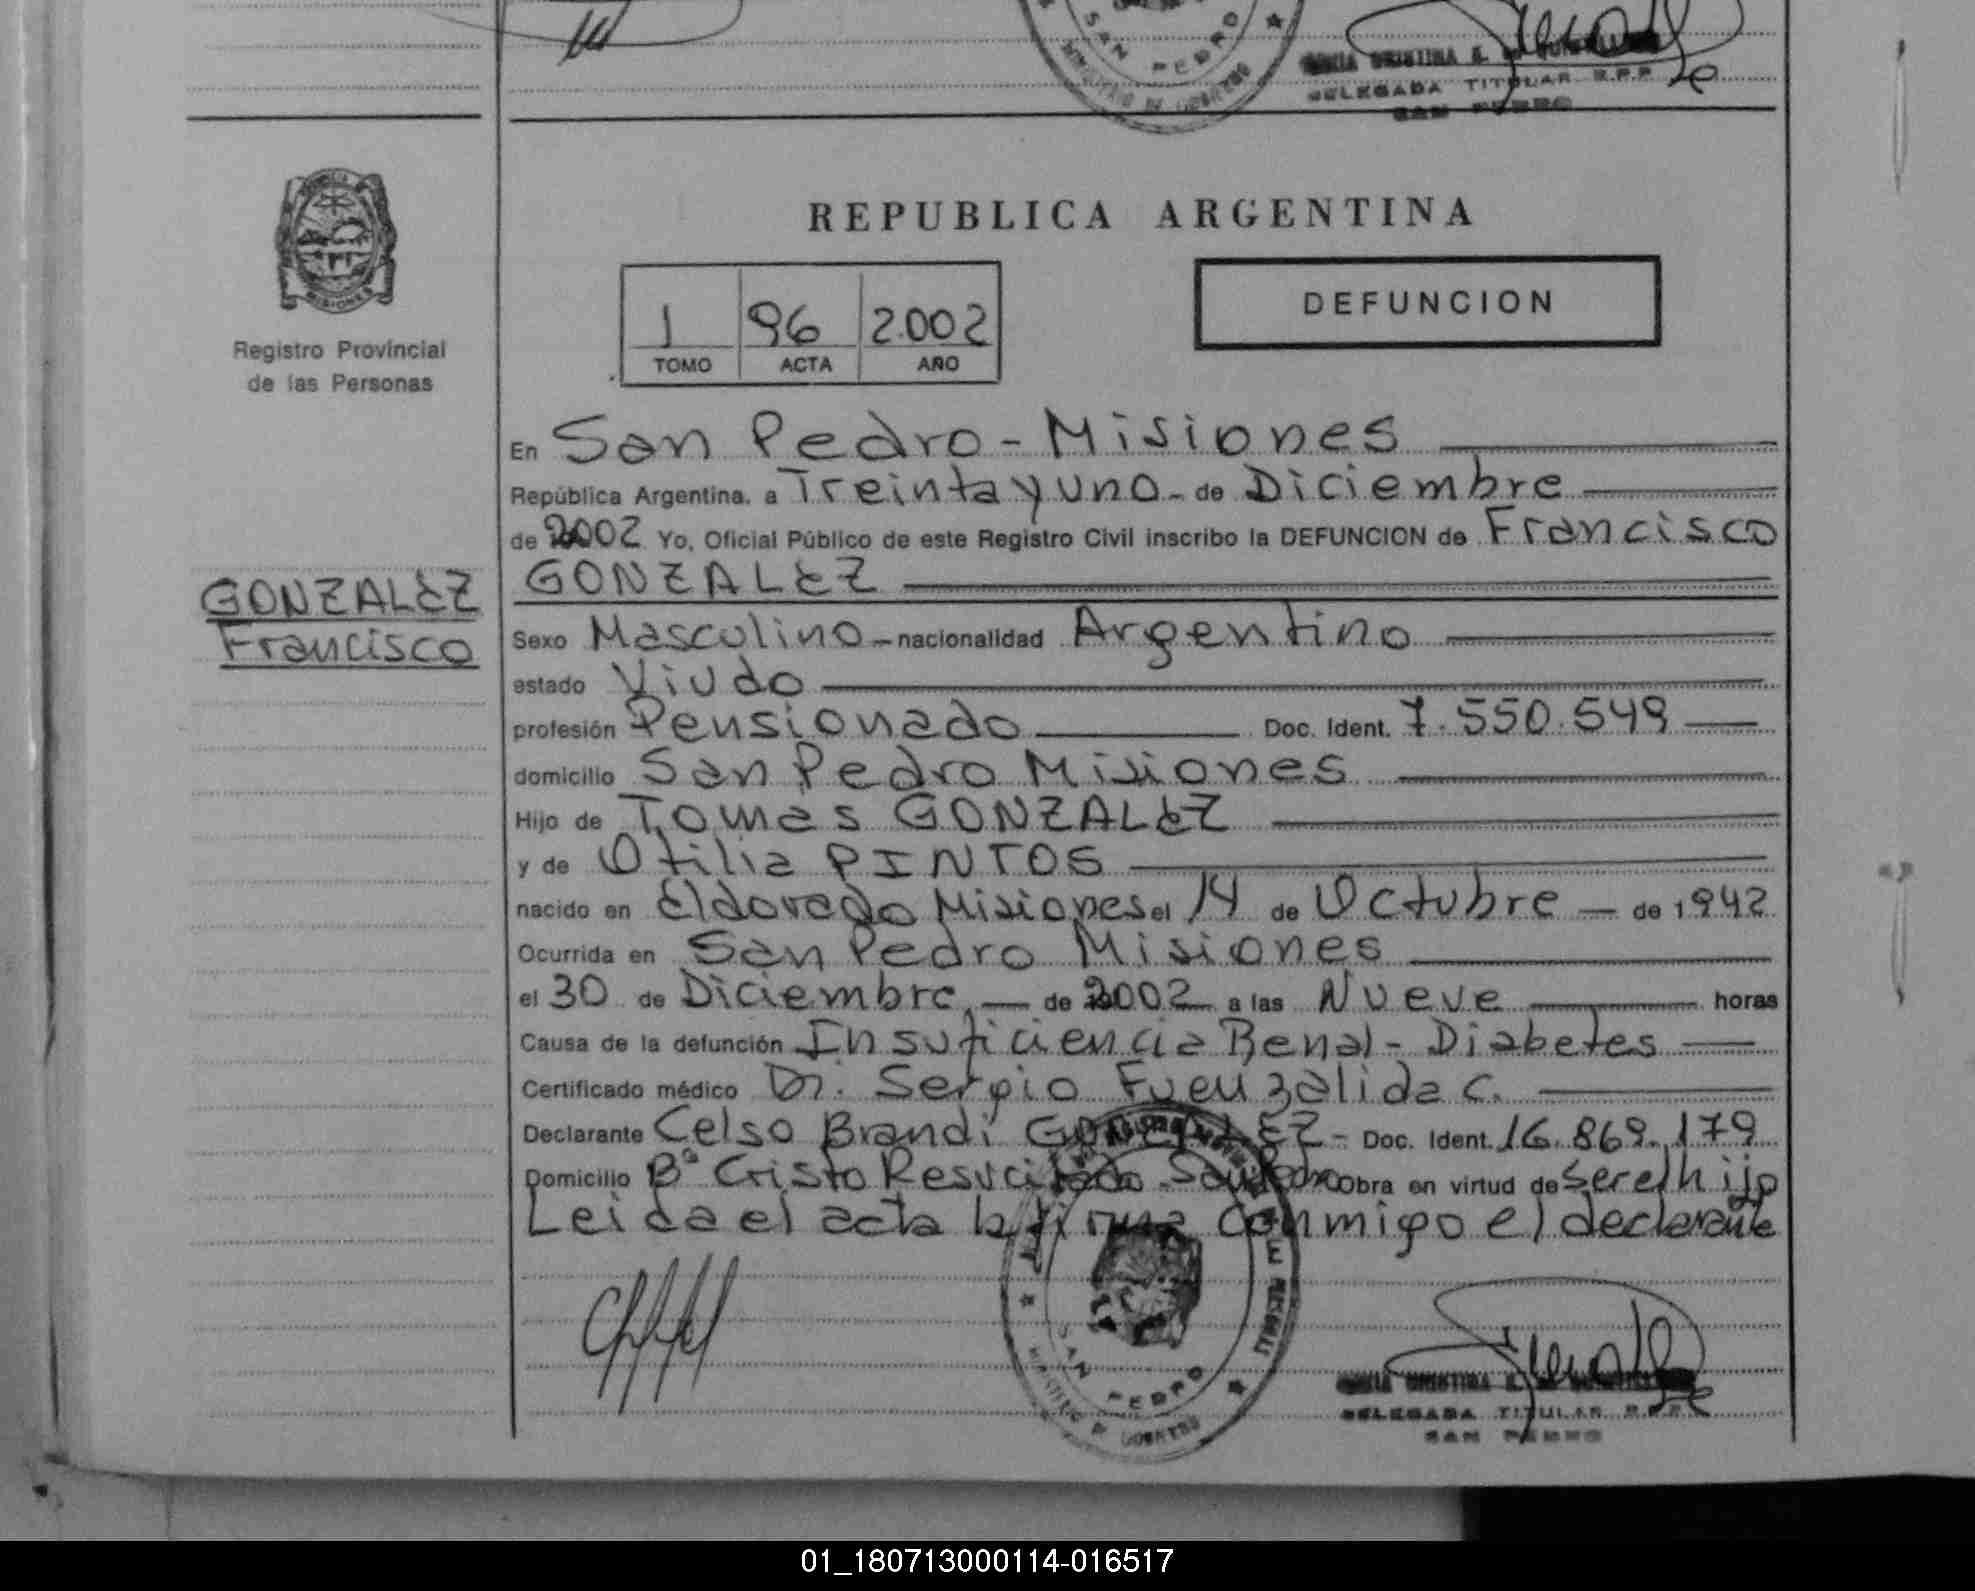 SAN PEDRO
DELEGADA TITULAR R.P.P.
SAN PEDRO
MISIONES
Registro Provincial
de las Personas
REPUBLICA ARGENTINA
1 96 2.002
TOMO ACTA AÑO
DEFUNCION
En San Pedro - Misiones
República Argentina, a Treinta y uno - de Diciembre
de 2002 Yo, Oficial Público de este Registro Civil inscribo la DEFUNCION de Francisco
GONZALEZ
GONZALEZ
Francisco
Sexo Masculino - nacionalidad Argentino
estado Viudo
profesión Pensionado Doc. Ident. 7.550.549
domicilio San Pedro Misiones
Hijo de Tomas GONZALEZ
y de Otilia PINTOS
nacido en Eldorado Misiones el 14 de Octubre — de 1942
Ocurrida en San Pedro Misiones
el 30 de Diciembre, — de 2002 a las Nueve horas
Causa de la defunción Insuficiencia Renal - Diabetes
Certificado médico Dr. Sergio Fuenzalida C.
Declarante Celso Brandi GONZALEZ - Doc. Ident. 16.869.179
Domicilio Bº Cristo Resucitado San Pedro Obra en virtud de ser el hijo
Leida el acta la firma conmigo el declarante
SAN PEDRO
DELEGADA TITULAR R.P.P.
SAN PEDRO
01_180713000114-016517